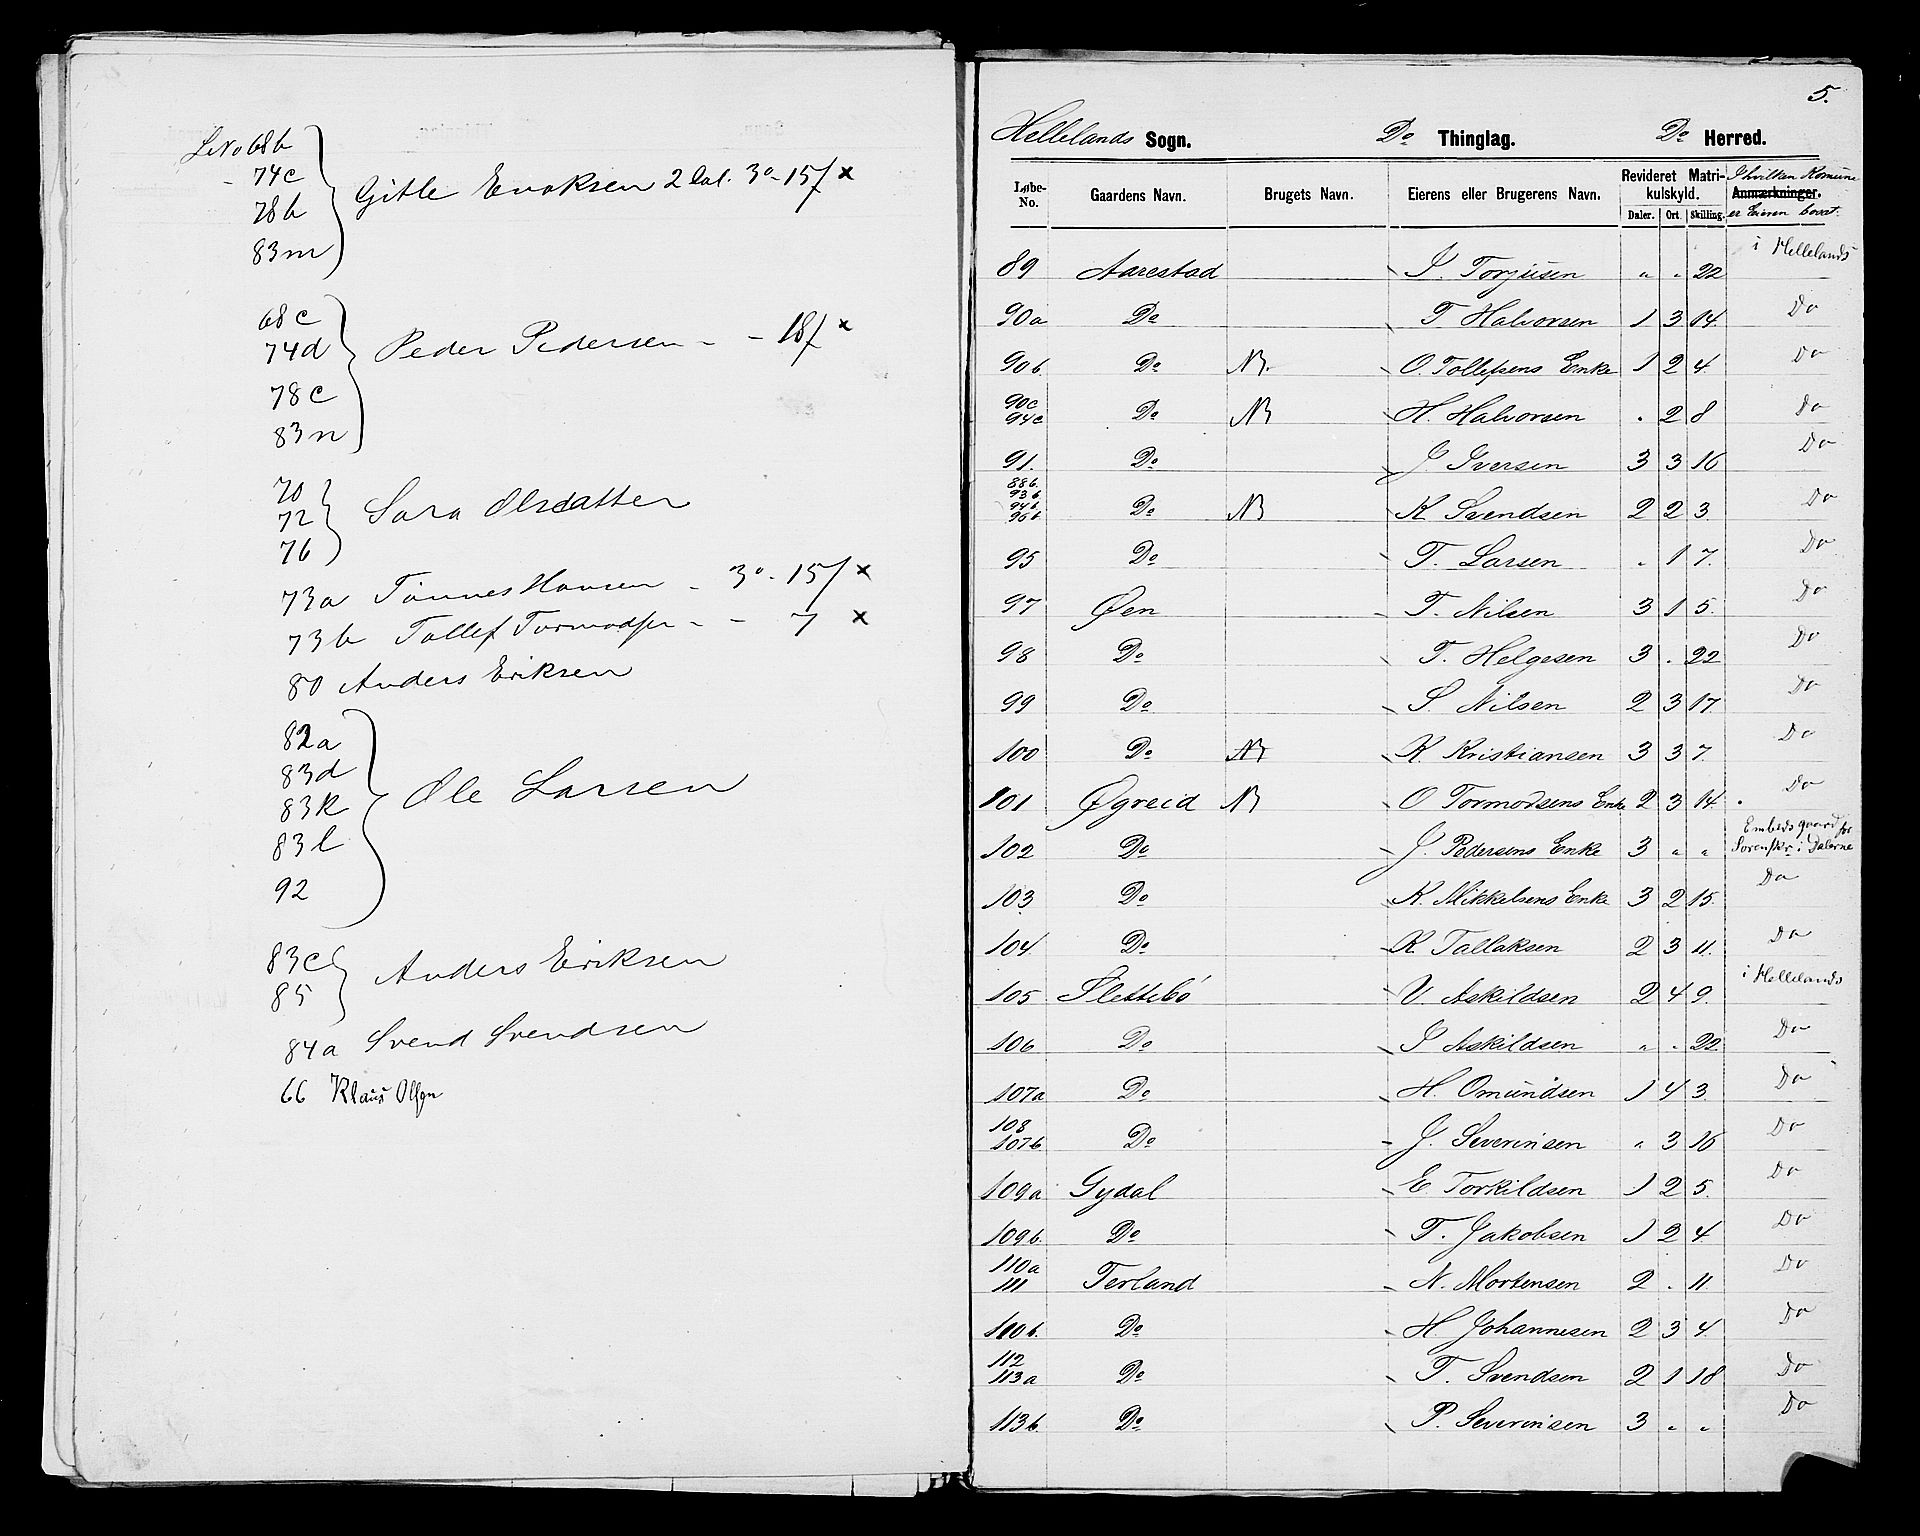 LNo 68b
- 74c
78b
83m
Gitle Enoksen 2 Dal. 3o - 15f x
68c
74d
78c
83n
Peder Pedersen - - 18f x
70
72
76
Sara Olsdatter
73a Tønnes Hansen - 3o - 15f x
73b Tollef Tormodsen - - 7 x
80 Anders Eriksen
82a
83d
83k
83l
92
Ole Larsen
83c
85
Anders Eriksen
84a Svend Svendsen
66 Klaus Olsen
5.
Hellelands Sogn. Do Thinglag. Do Herred.
Løbe-No. Gaardens Navn. Brugets Navn. Eierens eller Brugerens Navn. Revideret Matrikulskyld. Daler. Ort. Skilling. Anmærkninger. I hvilken Komune er Eieren bosat.
89 Aarestad I. Torjusen " " 22 i Hellelands
90a Do T Halvorsen 1 3 14 Do
90b. Do NB. O. Tollefsens Enke 1 2 4 Do
90c 94c Do NB H. Halvorsen . 2 8 Do
91. Do J Iversen 3 3 16 Do
88b. 93b 94b. 96b Do NB K Svendsen 2 2 3. Do
95 Do T. Larsen " 1 7. Do
97 Øen T. Nilsen 3 1 5. Do
98 Do T. Helgesen 3 . 22 Do
99 Do S. Nilsen 2 3 17. Do
100 Do NB K. Kristiansen 3 3 7 Do
101 Øgreid NB O Tormodsens Enke 2 3 14. Do
102 Do J. Pedersens Enke 3 " " Embedsgaard for Sorenskr i Dalerne
103 Do K. Mikkelsens Enke 3 2 15. Do
104 Do K Tallaksen 2 3 11. Do
105 Slettebø V Askildsen 2 4 9. i Hellelands
106 Do I Askildsen " " 22 Do
107a Do H. Omundsen 1 4 3. Do
108 107b Do J. Severinsen " 3 16 Do
109a Gydal E Torkildsen 1 2 5. Do
109b. Do T. Jakobsen 1 2 4 Do
110a 111 Terland N. Mortensen 2 . 11. Do
110b. Do H Johannesen 2 3 4. Do
112 113a Do T. Svendsen 2 1 18 Do
113b. Do P. Severinsen 3 " " Do